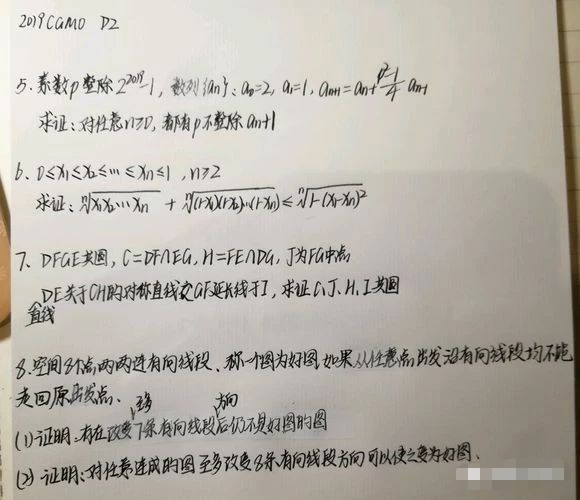 2019CGMO D2
5. 素数p整除2^2019-1, 数列{an}: a0=2, a1=1, an+1=an+(p²-1)/4 an-1
求证: 对任意n≥0, 都有p不整除an+1
6. 0≤x1≤x2≤…≤xn≤1, n≥2
求证: ⁿ√x1x2…xn + ⁿ√(1-x1)(1-x2)…(1-xn) ≤ ⁿ√1-(x1-xn)²
7. DFGE共圆, C=DF∩EG, H=FE∩DG, J为FG中点
DE关于CH的对称直线交GF延长线于I, 求证C、J、H、I共圆
直线
8. 空间8个点两两连有向线段、称一个图为好图如果从任意点出发沿有向线段均不能
走回原出发点.
(1) 证明: 存在改变至多7条有向线段方向后仍不是好图的图
(2) 证明: 对任意连成的图至多改变8条有向线段方向可以使之变为好图.